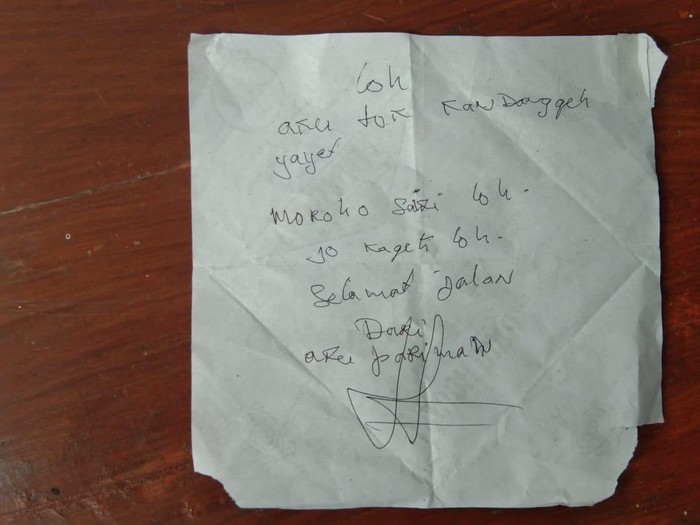 loh
aku tok kandanggeh
yayet
moroho saki loh.
jo kageti loh.
Selamat jalan
Dari
aku pariman